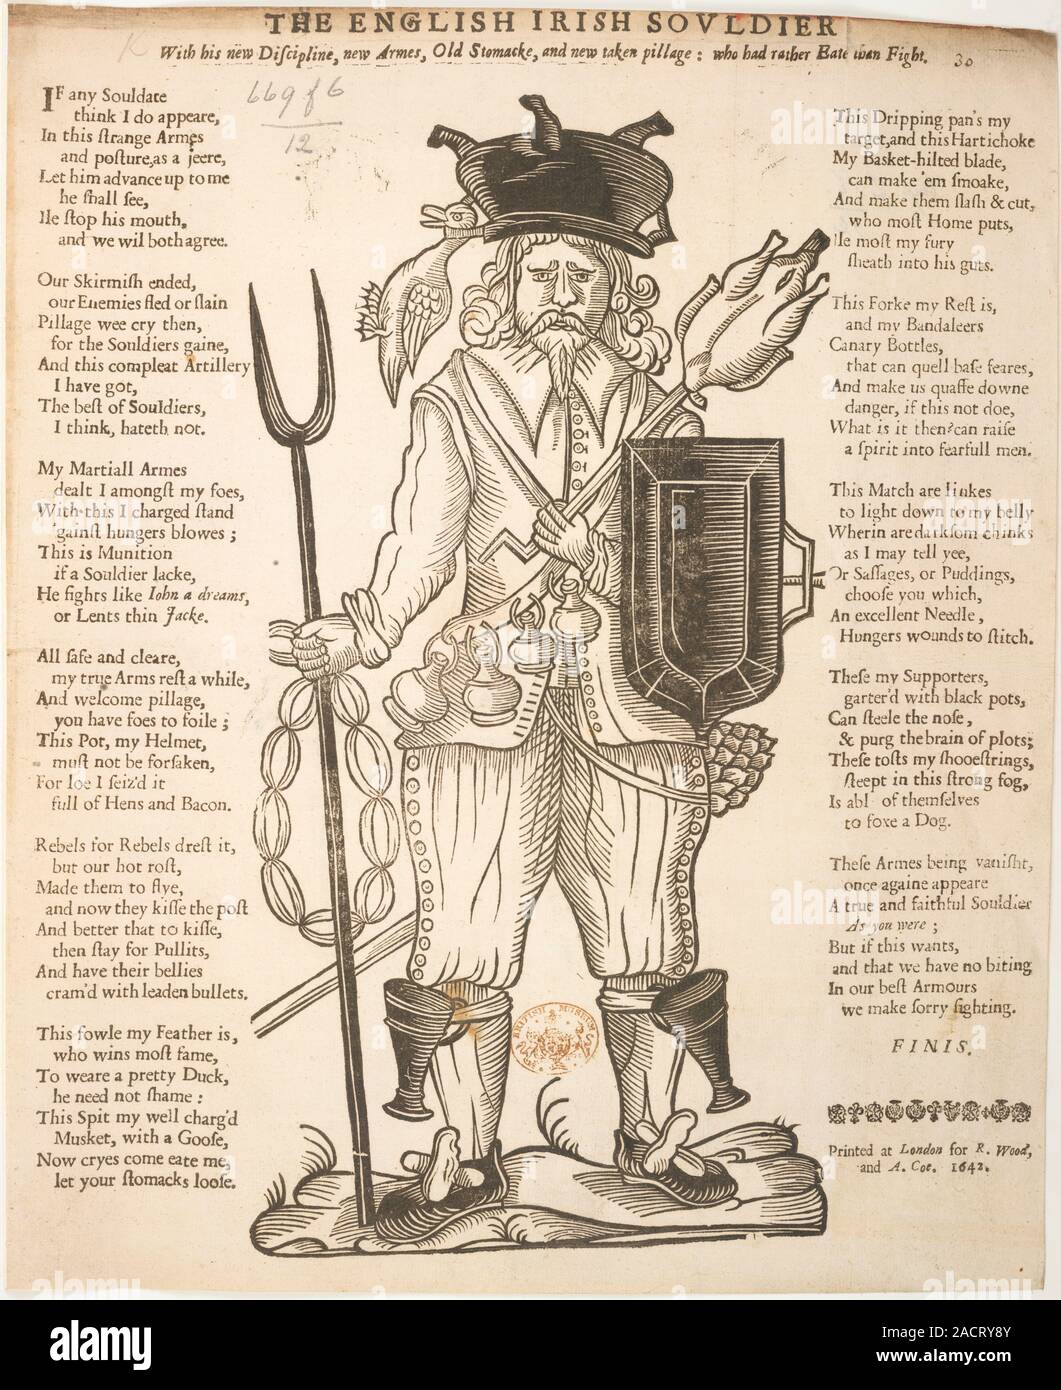 THE ENGLISH IRISH SOVLDIER
With his new Discipline, new Armes, Old Stomacke, and new taken pillage: who had rather Eate than Fight.
30
669 f 6
12
IF any Souldate
think I do appeare,
In this strange Armes
and posture, as a jeere,
Let him advance up to me
he shall see,
Ile stop his mouth,
and we wil both agree.
Our Skirmish ended,
our Enemies fled or slain
Pillage wee cry then,
for the Souldiers gaine,
And this compleat Artillery
I have got,
The best of Souldiers,
I think, hateth not.
My Martiall Armes
dealt I amongst my foes,
With this I charged stand
'gainst hungers blowes;
This is Munition
if a Souldier lacke,
He fights like Iohn a dreams,
or Lents thin Jacke.
All safe and cleare,
my true Arms rest a while,
And welcome pillage,
you have foes to foile;
This Pot, my Helmet,
must not be forsaken,
For loe I seiz'd it
full of Hens and Bacon.
Rebels for Rebels drest it,
but our hot rost,
Made them to flye,
and now they kisse the post
And better that to kisse,
then stay for Pullits,
And have their bellies
cram'd with leaden bullets.
This fowle my Feather is,
who wins most fame,
To weare a pretty Duck,
he need not shame:
This Spit my well charg'd
Musket, with a Goose,
Now cryes come eate me,
let your stomacks loose.
This Dripping pan's my
target, and this Hartichoke
My Basket-hilted blade,
can make 'em smoake,
And make them slash & cut,
who most Home puts,
Ile most my fury
sheath into his guts.
This Forke my Rest is,
and my Bandaleers
Canary Bottles,
that can quell base feares,
And make us quaffe downe
danger, if this not doe,
What is it then? can raise
a spirit into fearfull men.
This Match are linkes
to light down to my belly
Wherin are darksom chinks
as I may tell yee,
Or Sassages, or Puddings,
choose you which,
An excellent Needle,
Hungers wounds to stitch.
These my Supporters,
garter'd with black pots,
Can steele the nose,
& purg the brain of plots;
These tosts my shooestrings,
steept in this strong fog,
Is abl of themselves
to foxe a Dog.
These Armes being vanisht,
once againe appeare
A true and faithful Souldier
As you were;
But if this wants,
and that we have no biting
In our best Armours
we make sorry fighting.
FINIS.
Printed at London for R. Wood,
and A. Coe. 1642.
BRITISH MUSEUM
alamy
Image ID: 2ACRY8Y
www.alamy.com